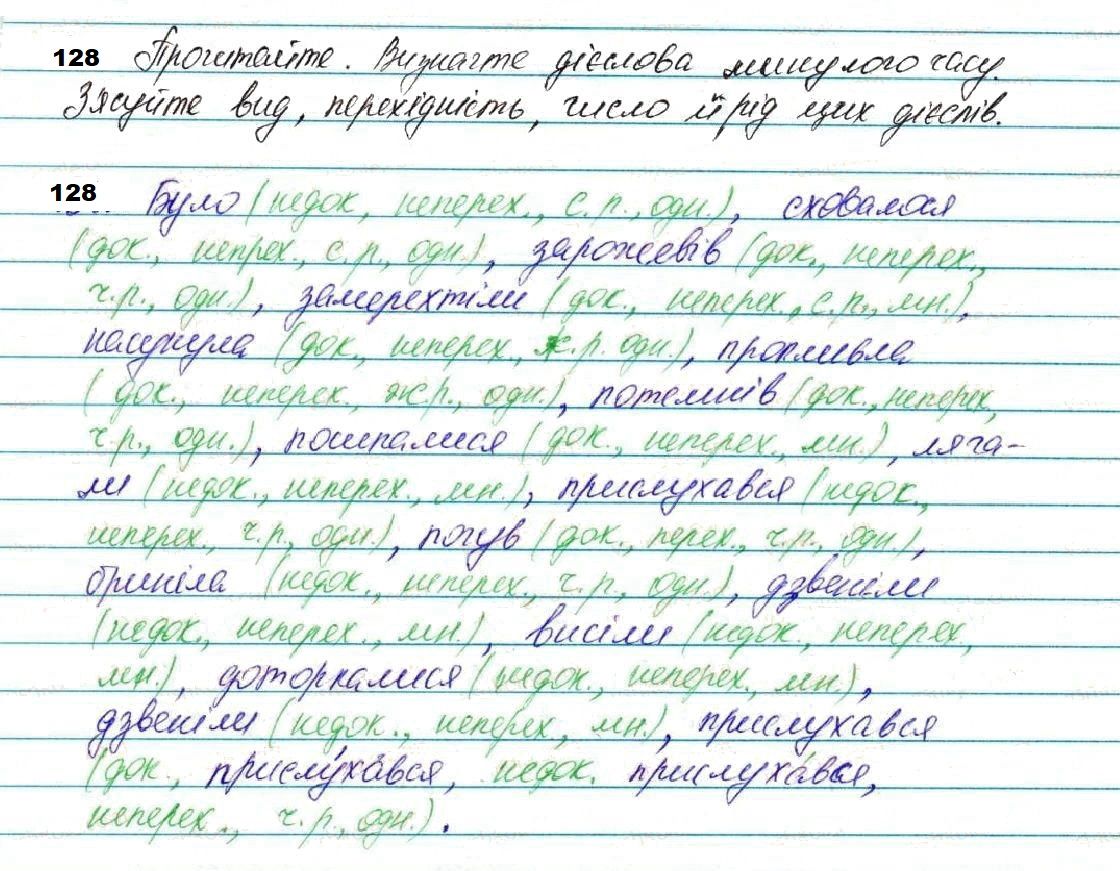 128 Прочитайте. Визначте дієслова минулого часу.
З'ясуйте вид, перехідність, число й рід цих дієслів.
128 Було (недок, неперех., с.р., одн.), сховалося
(док., непрех., с.р., одн.), зарожевів (док., неперех.,
ч.р., одн.), замерехтіли (док., неперех., с.р., мн.),
насунула (док., неперех., ж.р. одн.), пропливла
(док., неперех., ж.р., одн.), потемнів (док., неперех,
ч.р., одн.), посипалися (док., неперех., мн.), ляга-
ли (недок., неперех., мн.), прислухався (недок.,
неперех., ч.р., одн.), почув (док., перех., ч.р., одн.),
бриніла (недок., неперех., ч.р., одн.), дзвеніли
(недок., неперех., мн.), висіли (недок., неперех.,
мн.), доторкалися (недок., неперех., мн.),
дзвеніли (недок., неперех., мн.), прислухався
(док., прислу́хався, недок. прислуха́вся,
неперех., ч.р., одн.).